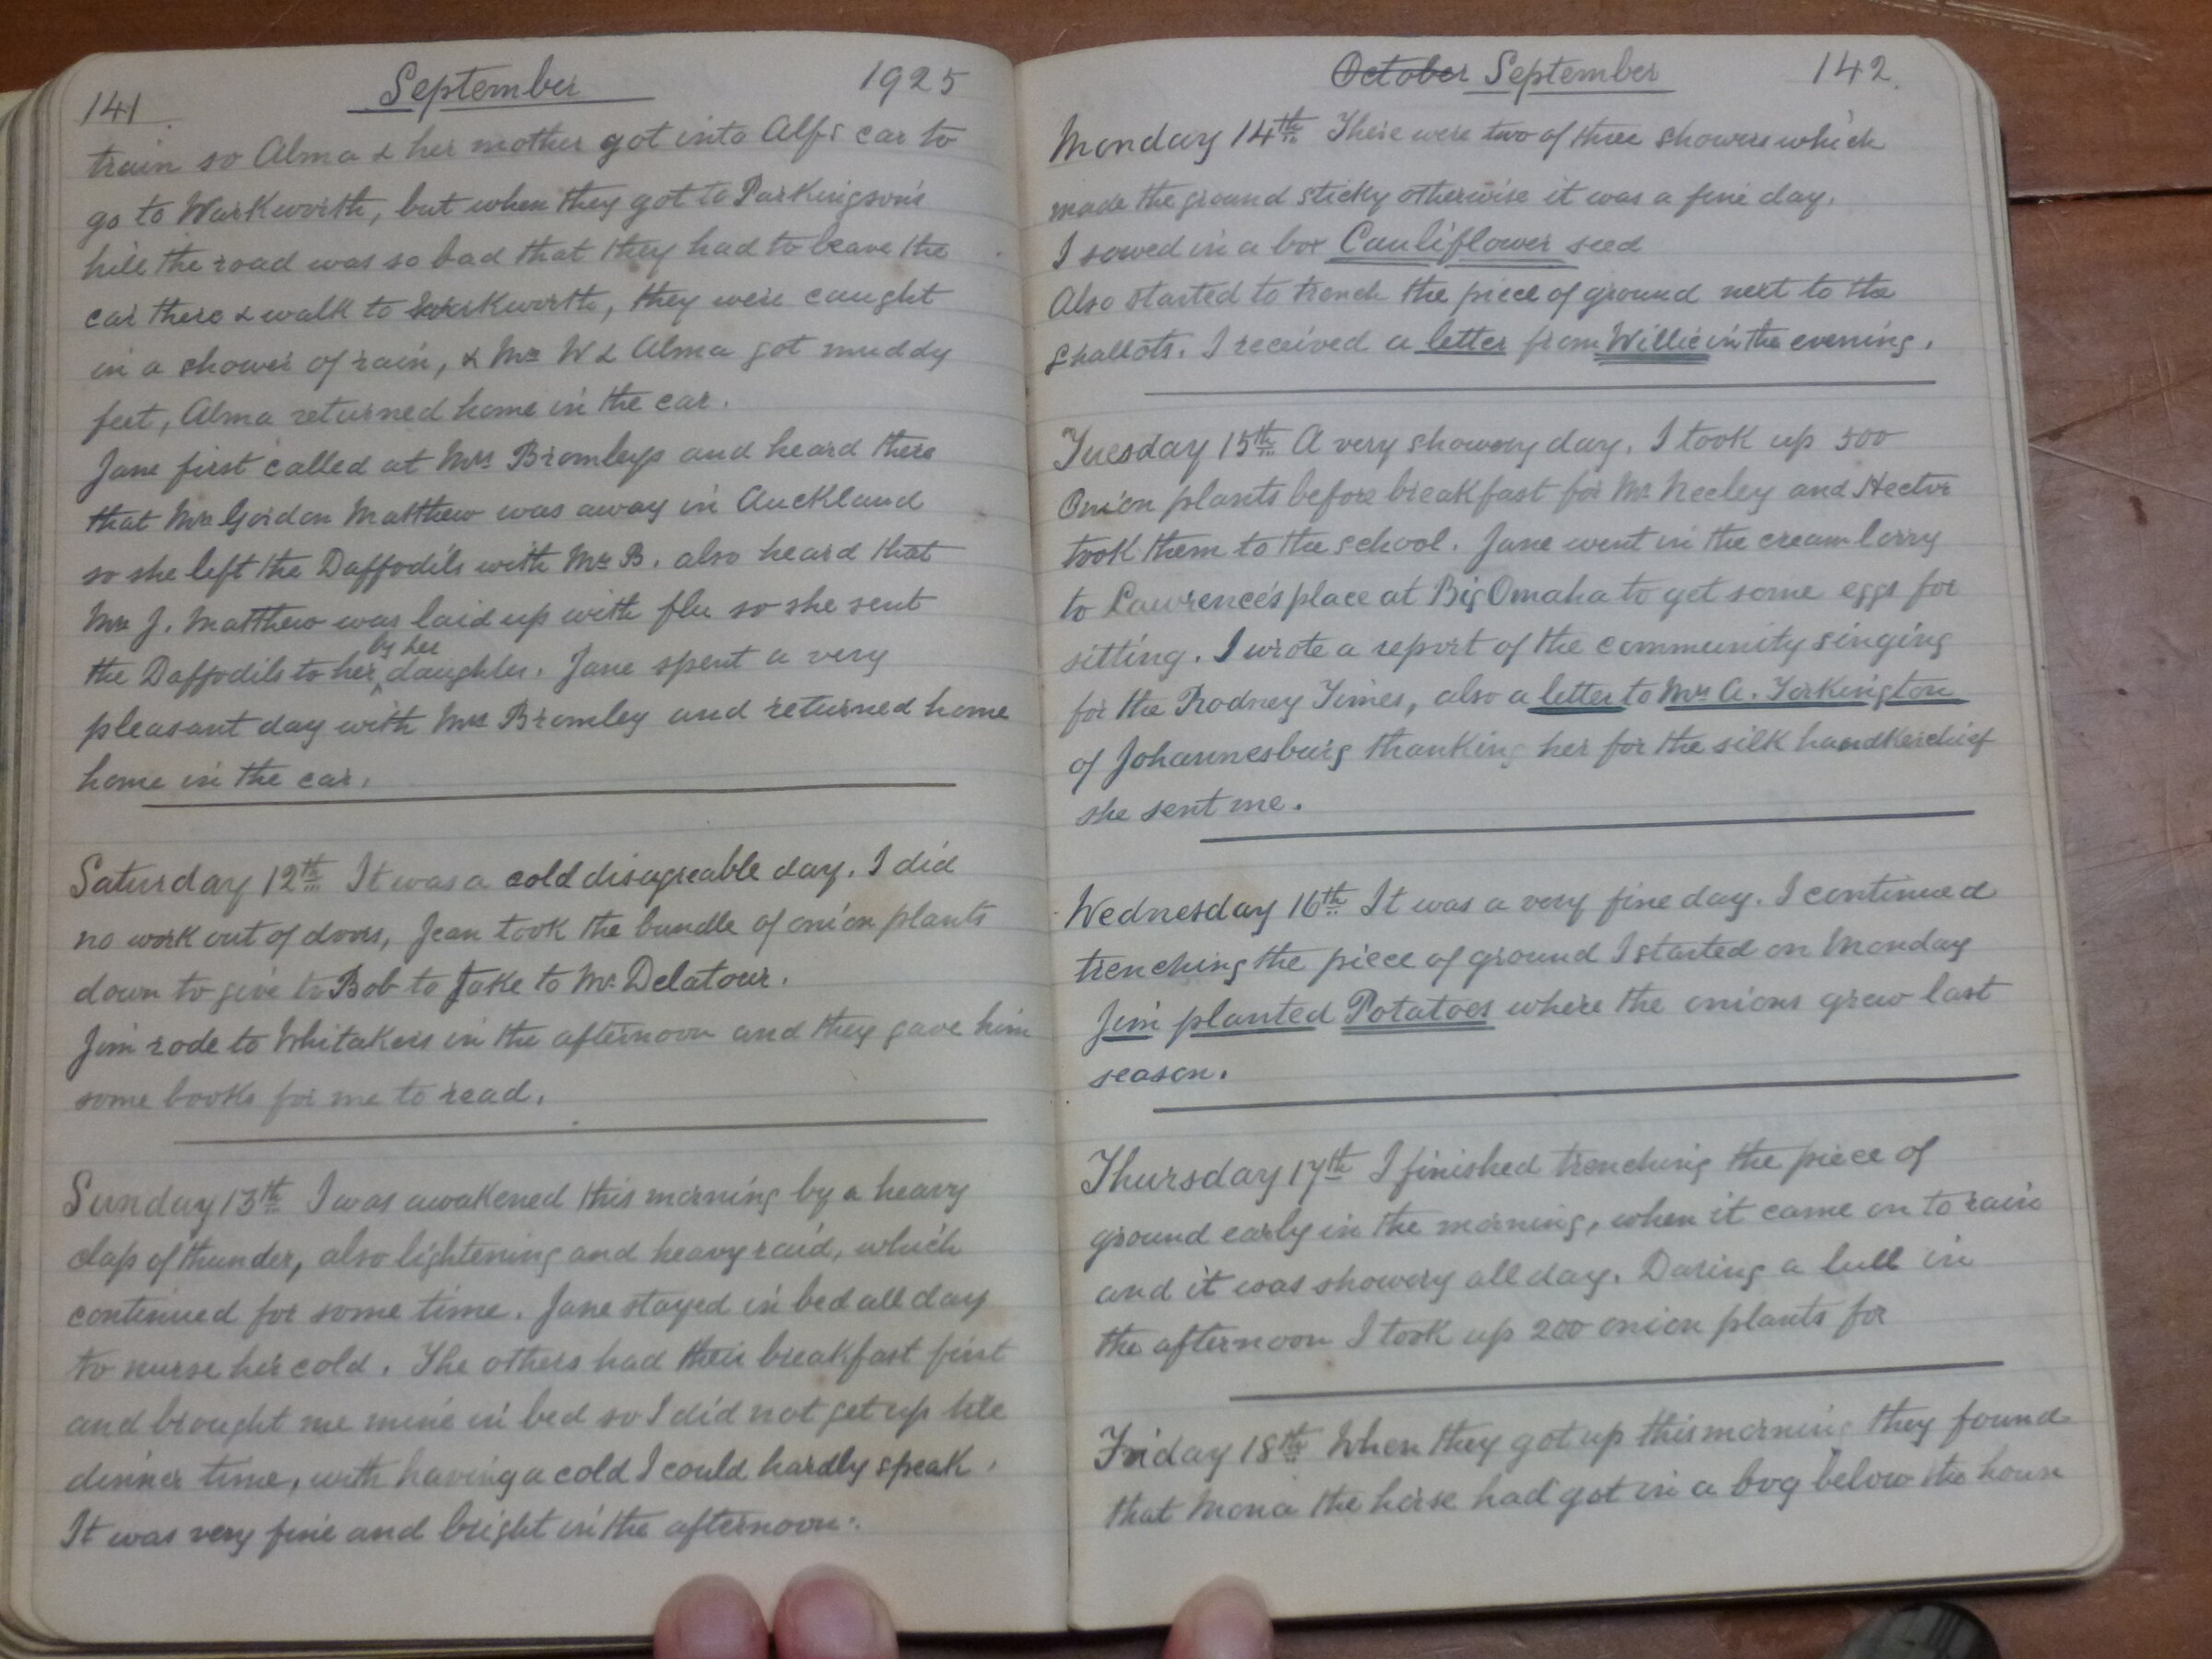 141 September 1925
train so Alma & her mother got into Alf's car to
go to Warkworth, but when they got to Parkingson's
hill the road was so bad that they had to leave the
car there & walk to Warkworth, they were caught
in a shower of rain, & Mrs W & Alma got muddy
feet, Alma returned home in the car.
Jane first called at Mrs Bromleys and heard there
that Mrs Gordon Matthew was away in Auckland
so she left the Daffodils with Mrs B. also heard that
Mrs J. Matthew was laid up with flu so she sent
by her
the Daffodils to her daughter. Jane spent a very
pleasant day with Mrs Bromley and returned home
home in the car.
Saturday 12th It was a cold disagreable day. I did
no work out of doors, Jean took the bundle of onion plants
down to give to Bob to take to Mr Delatour.
Jim rode to Whitakers in the afternoon and they gave him
some books for me to read.
Sunday 13th I was awakened this morning by a heavy
clap of thunder, also lightening and heavy raid, which
continued for some time. Jane stayed in bed all day
to nurse her cold. The others had their breakfast first
and brought me mine in bed so I did not get up till
dinner time, with having a cold I could hardly speak.
It was very fine and bright in the afternoon.
October September 142
Monday 14th There were two of three showers which
made the ground sticky otherwise it was a fine day.
I sowed in a box Cauliflower seed
Also started to trench the piece of ground next to the
shallots. I received a letter from Willie in the evening.
Tuesday 15th A very showery day. I took up 500
Onion plants before breakfast for Mr Neeley and Hector
took them to the school. Jane went in the cream lorry
to Lawrence's place at Big Omaha to get some eggs for
sitting. I wrote a report of the community singing
for the Rodney Times, also a letter to Mrs A. Torkington
of Johannesburg thanking her for the silk handkerchief
she sent me.
Wednesday 16th It was a very fine day. I continued
trenching the piece of ground I started on Monday
Jim planted Potatoes where the onions grew last
season.
Thursday 17th I finished trenching the piece of
ground early in the morning, when it came on to rain
and it was showery all day. During a lull in
the afternoon I took up 200 onion plants for
Friday 18th When they got up this morning they found
that Mona the horse had got in a bog below the house